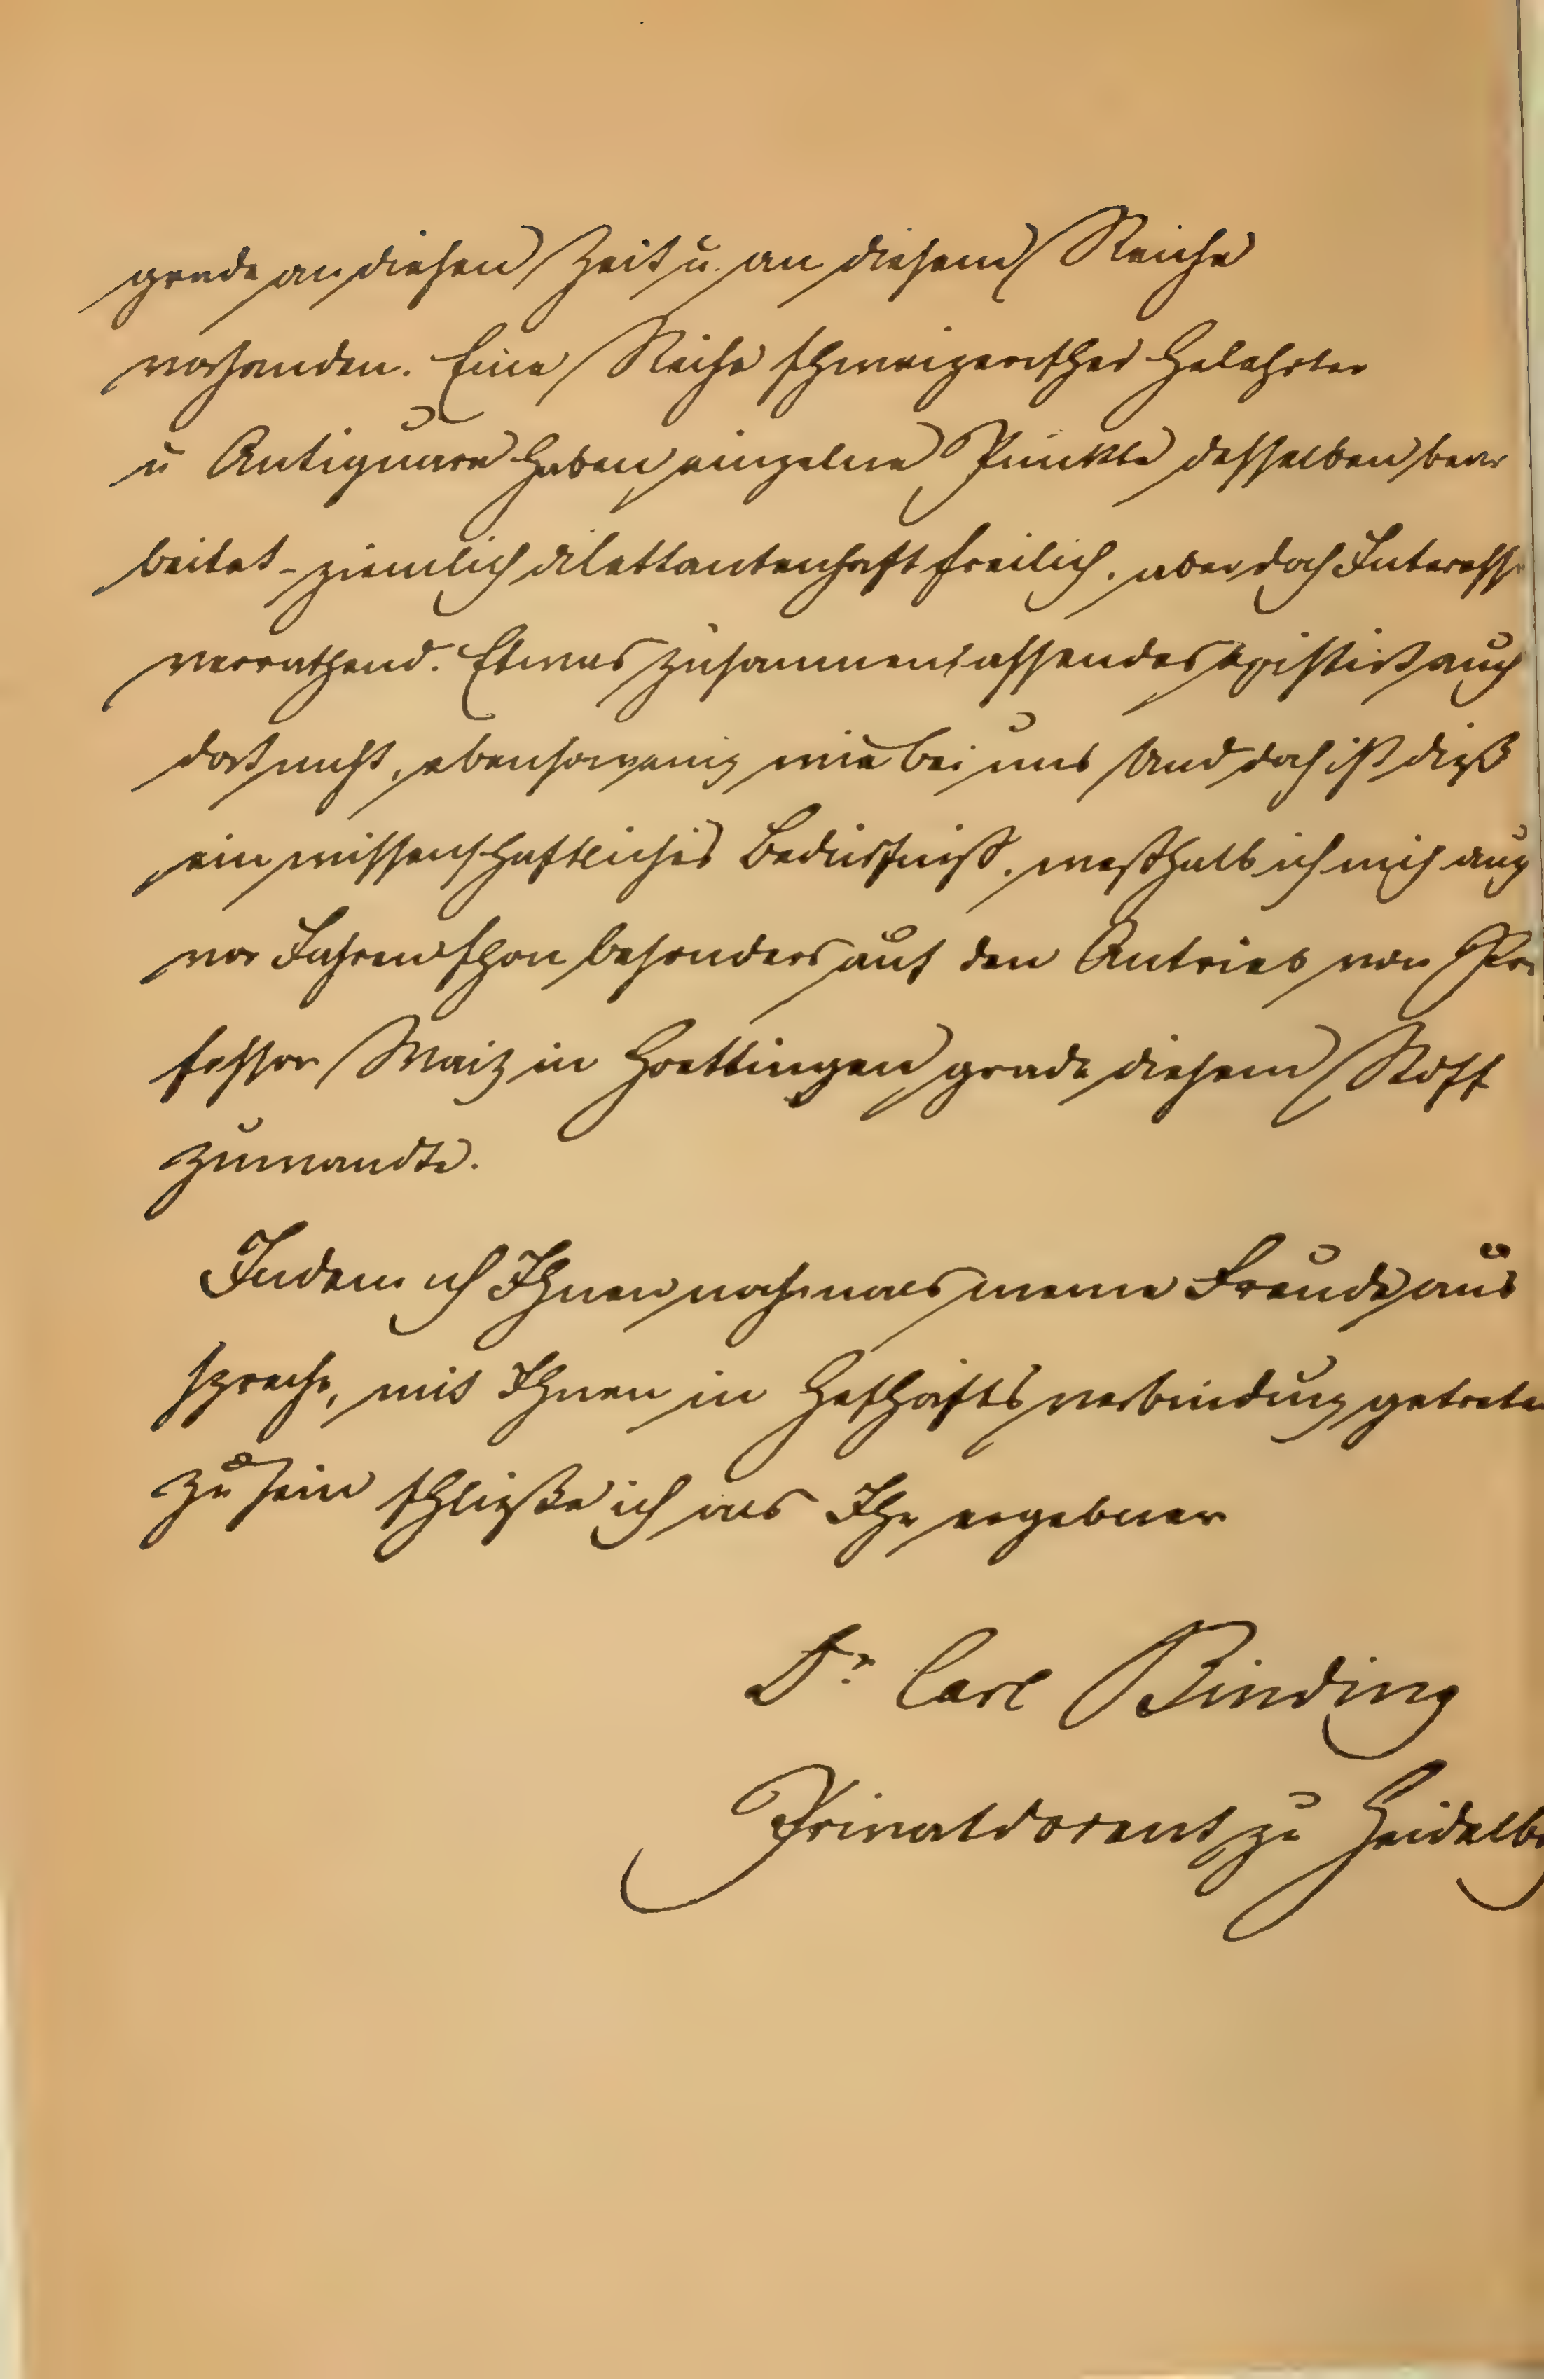 grade an dieser Zeit u. an diesem Reiche
vorhanden. Eine Reihe schweizerischer Gelehrter
u Antiquare haben einzelne Punkte desselben bear
beitet - ziemlich dilettantenhaft freilich, aber doch Interesse
verrathend. Etwas zusammenfassendes existirt auch
dort nicht, ebensowenig wie bei uns Und doch ist dieß
ein wissenschaftliches Bedürfniß, weßhalb ich mich auch
vor Jahren schon besonders auf den Antrieb von Pro
fessor Waiz in Goettingen grade diesem Stoff
zuwandte.
Indem ich Ihnen nochmals meine Freude aus
spreche, mit Ihnen in Geschäftsverbindung getreten
zu sein schließe ich als Ihr ergebner
Dr Carl Binding
Privatdocent zu Heidelbg